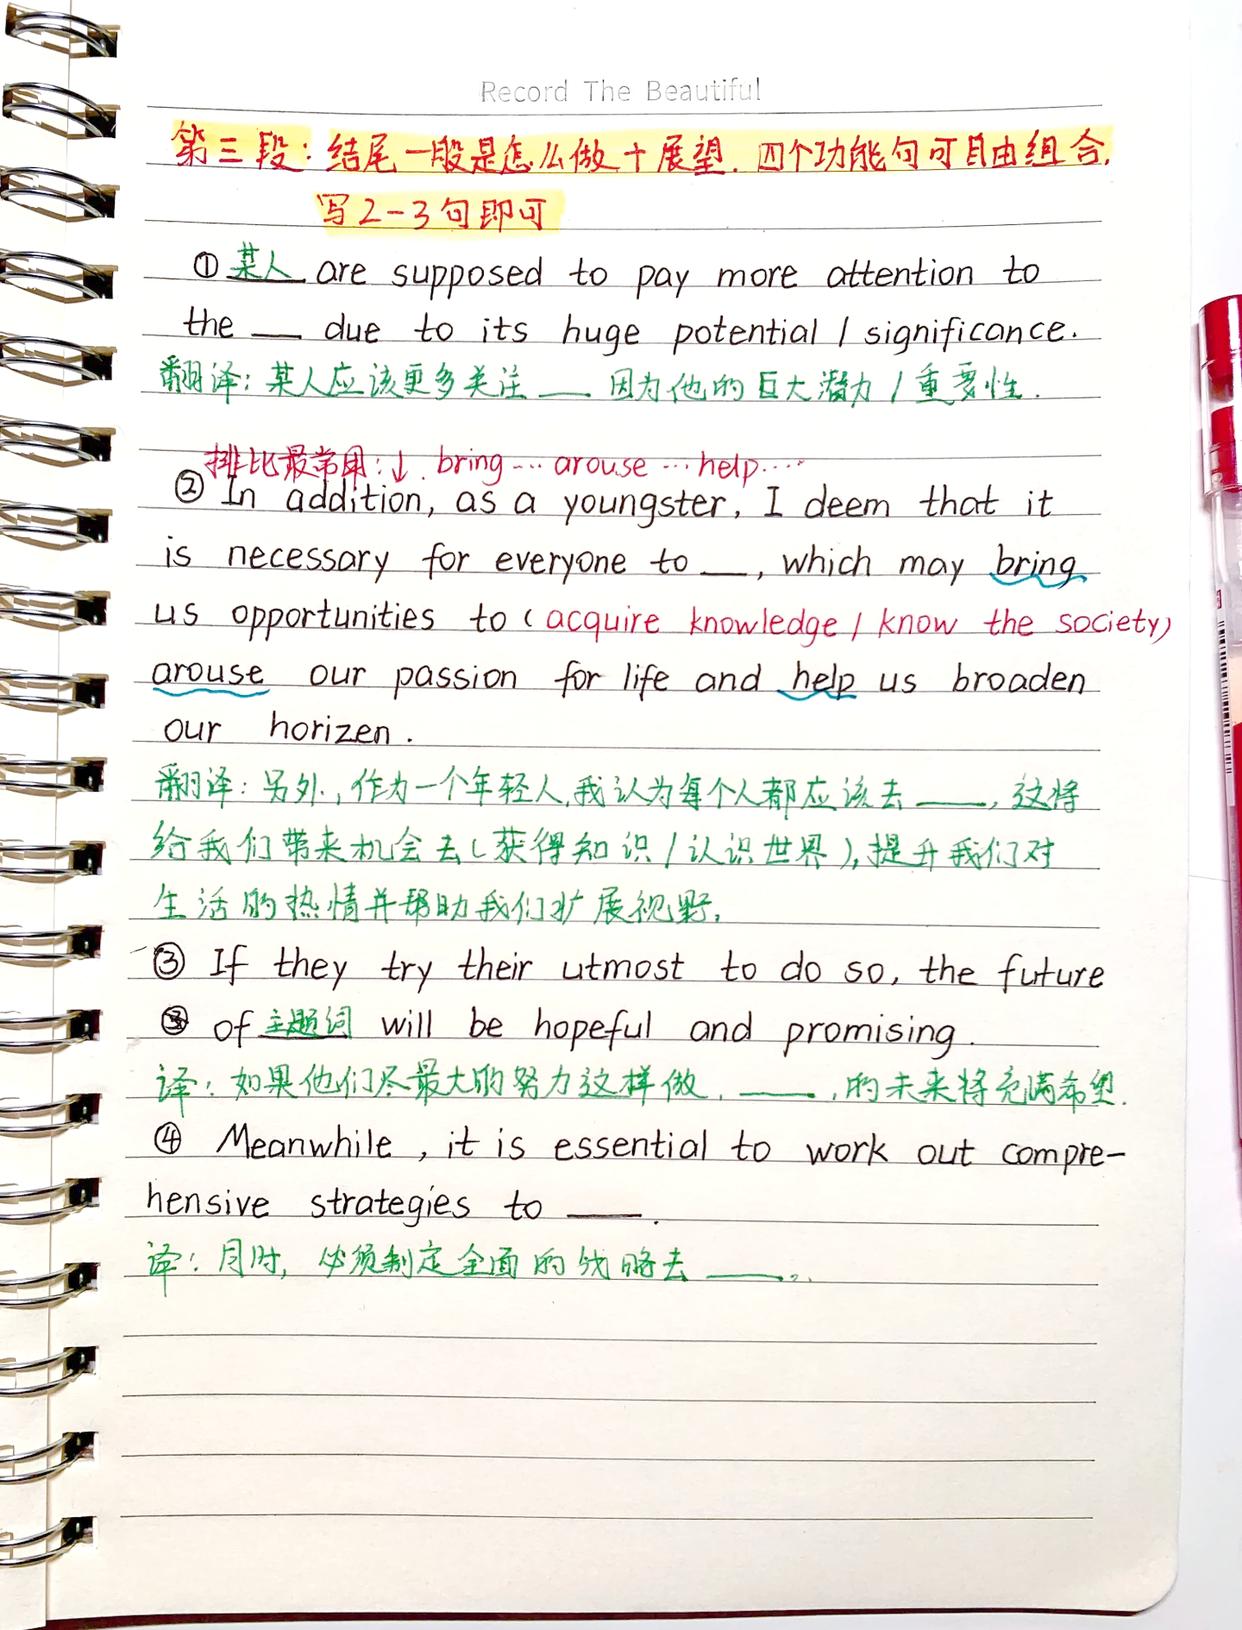 Record The Beautiful
第三段：结尾一般是怎么做+展望．四个功能句可自由组合，
写2-3句即可
①某人 are supposed to pay more attention to
the ___ due to its huge potential / significance.
翻译：某人应该更多关注 ___ 因为他的巨大潜力 / 重要性．
排比最常用：↓. bring … arouse … help…
② In addition, as a youngster, I deem that it
is necessary for everyone to ___, which may bring
us opportunities to (acquire knowledge / know the society)
arouse our passion for life and help us broaden
our horizen.
翻译：另外，作为一个年轻人，我认为每个人都应该去 ___，这将
给我们带来机会去（获得知识 / 认识世界），提升我们对
生活的热情并帮助我们扩展视野，
③ If they try their utmost to do so, the future
of 主题词 will be hopeful and promising.
译：如果他们尽最大的努力这样做，___，的未来将充满希望．
④ Meanwhile, it is essential to work out compre-
hensive strategies to ___.
译：同时，必须制定全面的战略去 ___。